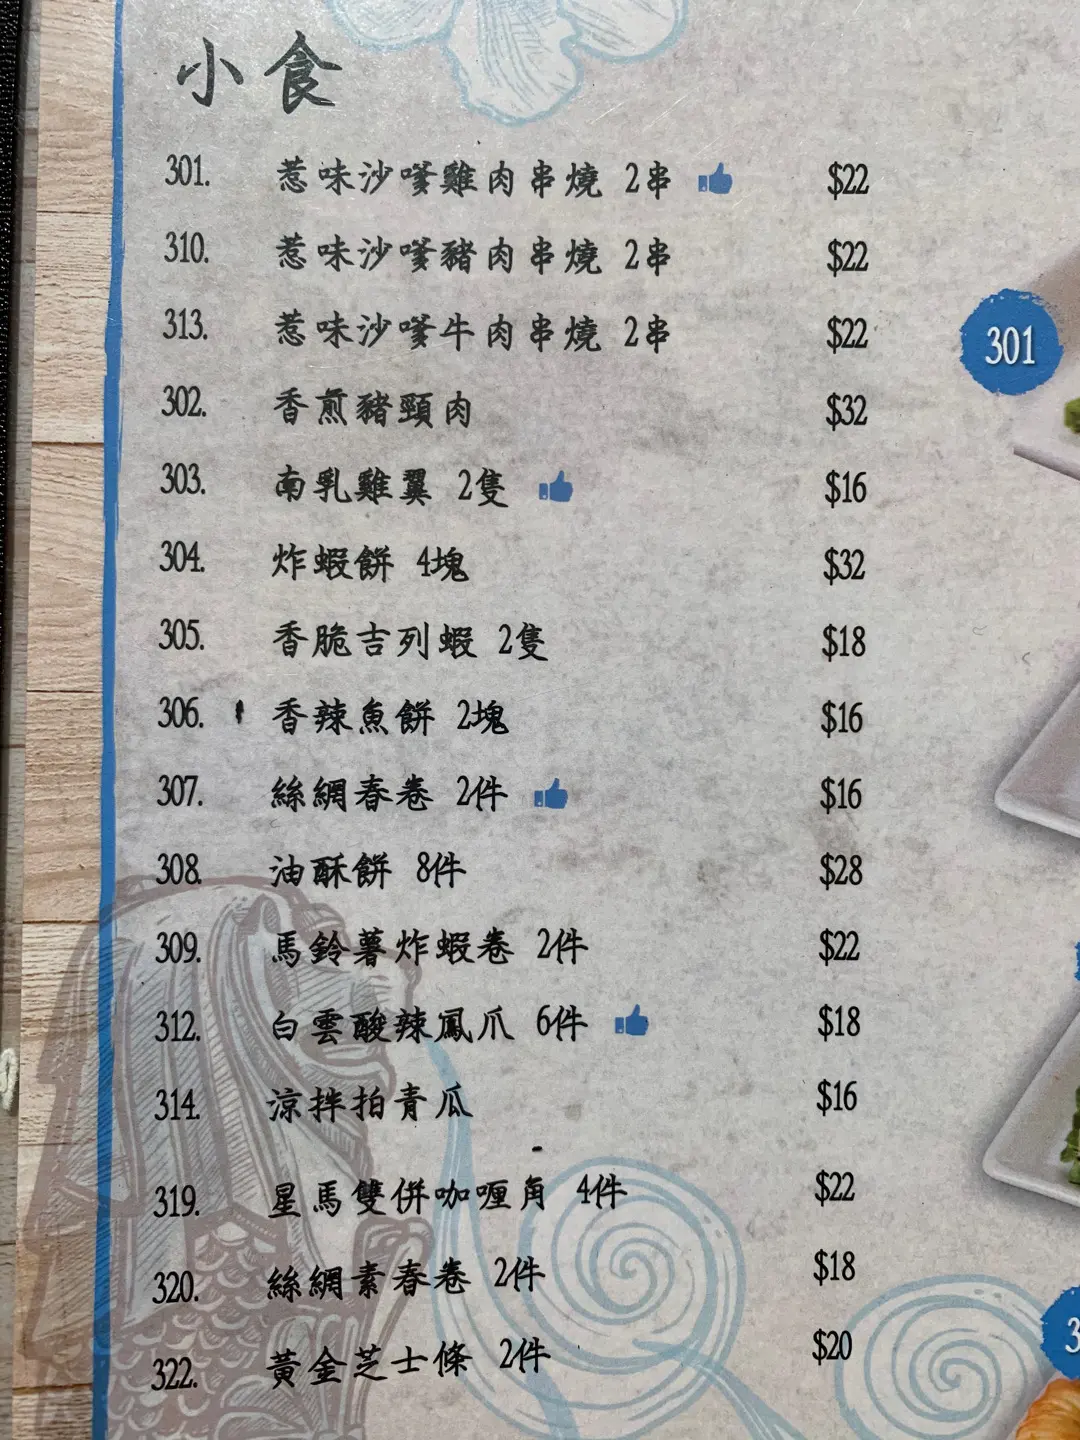 小食
301. 惹味沙嗲雞肉串燒 2串 $22
310. 惹味沙嗲豬肉串燒 2串 $22
313. 惹味沙嗲牛肉串燒 2串 $22
301
302. 香煎豬頸肉 $32
303. 南乳雞翼 2隻 $16
304. 炸蝦餅 4塊 $32
305. 香脆吉列蝦 2隻 $18
306. 香辣魚餅 2塊 $16
307. 絲網春卷 2件 $16
308. 油酥餅 8件 $28
309. 馬鈴薯炸蝦卷 2件 $22
312. 白雲酸辣鳳爪 6件 $18
314. 涼拌拍青瓜 $16
319. 星馬雙併咖喱角 4件 $22
320. 絲網素春卷 2件 $18
322. 黃金芝士條 2件 $20